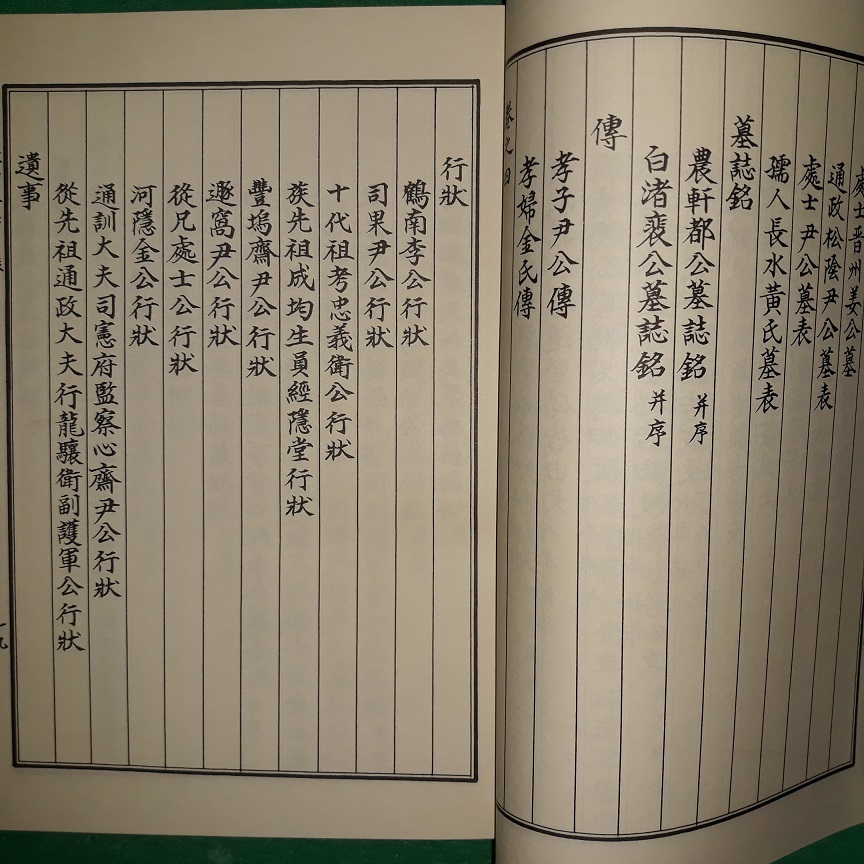 處士晋州姜公墓
通政松陰尹公墓表
處士尹公墓表
孺人長水黃氏墓表
墓誌銘
農軒都公墓誌銘 并序
白渚裵公墓誌銘 并序
傳
孝子尹公傳
孝婦金氏傳
行狀
鶴南李公行狀
司果尹公行狀
十代祖考忠義衛公行狀
族先祖成均生員經隱堂行狀
豐塢齋尹公行狀
邃窩尹公行狀
從兄處士公行狀
河隱金公行狀
通訓大夫司憲府監察心齋尹公行狀
從先祖通政大夫行龍驤衛副護軍公行狀
遺事